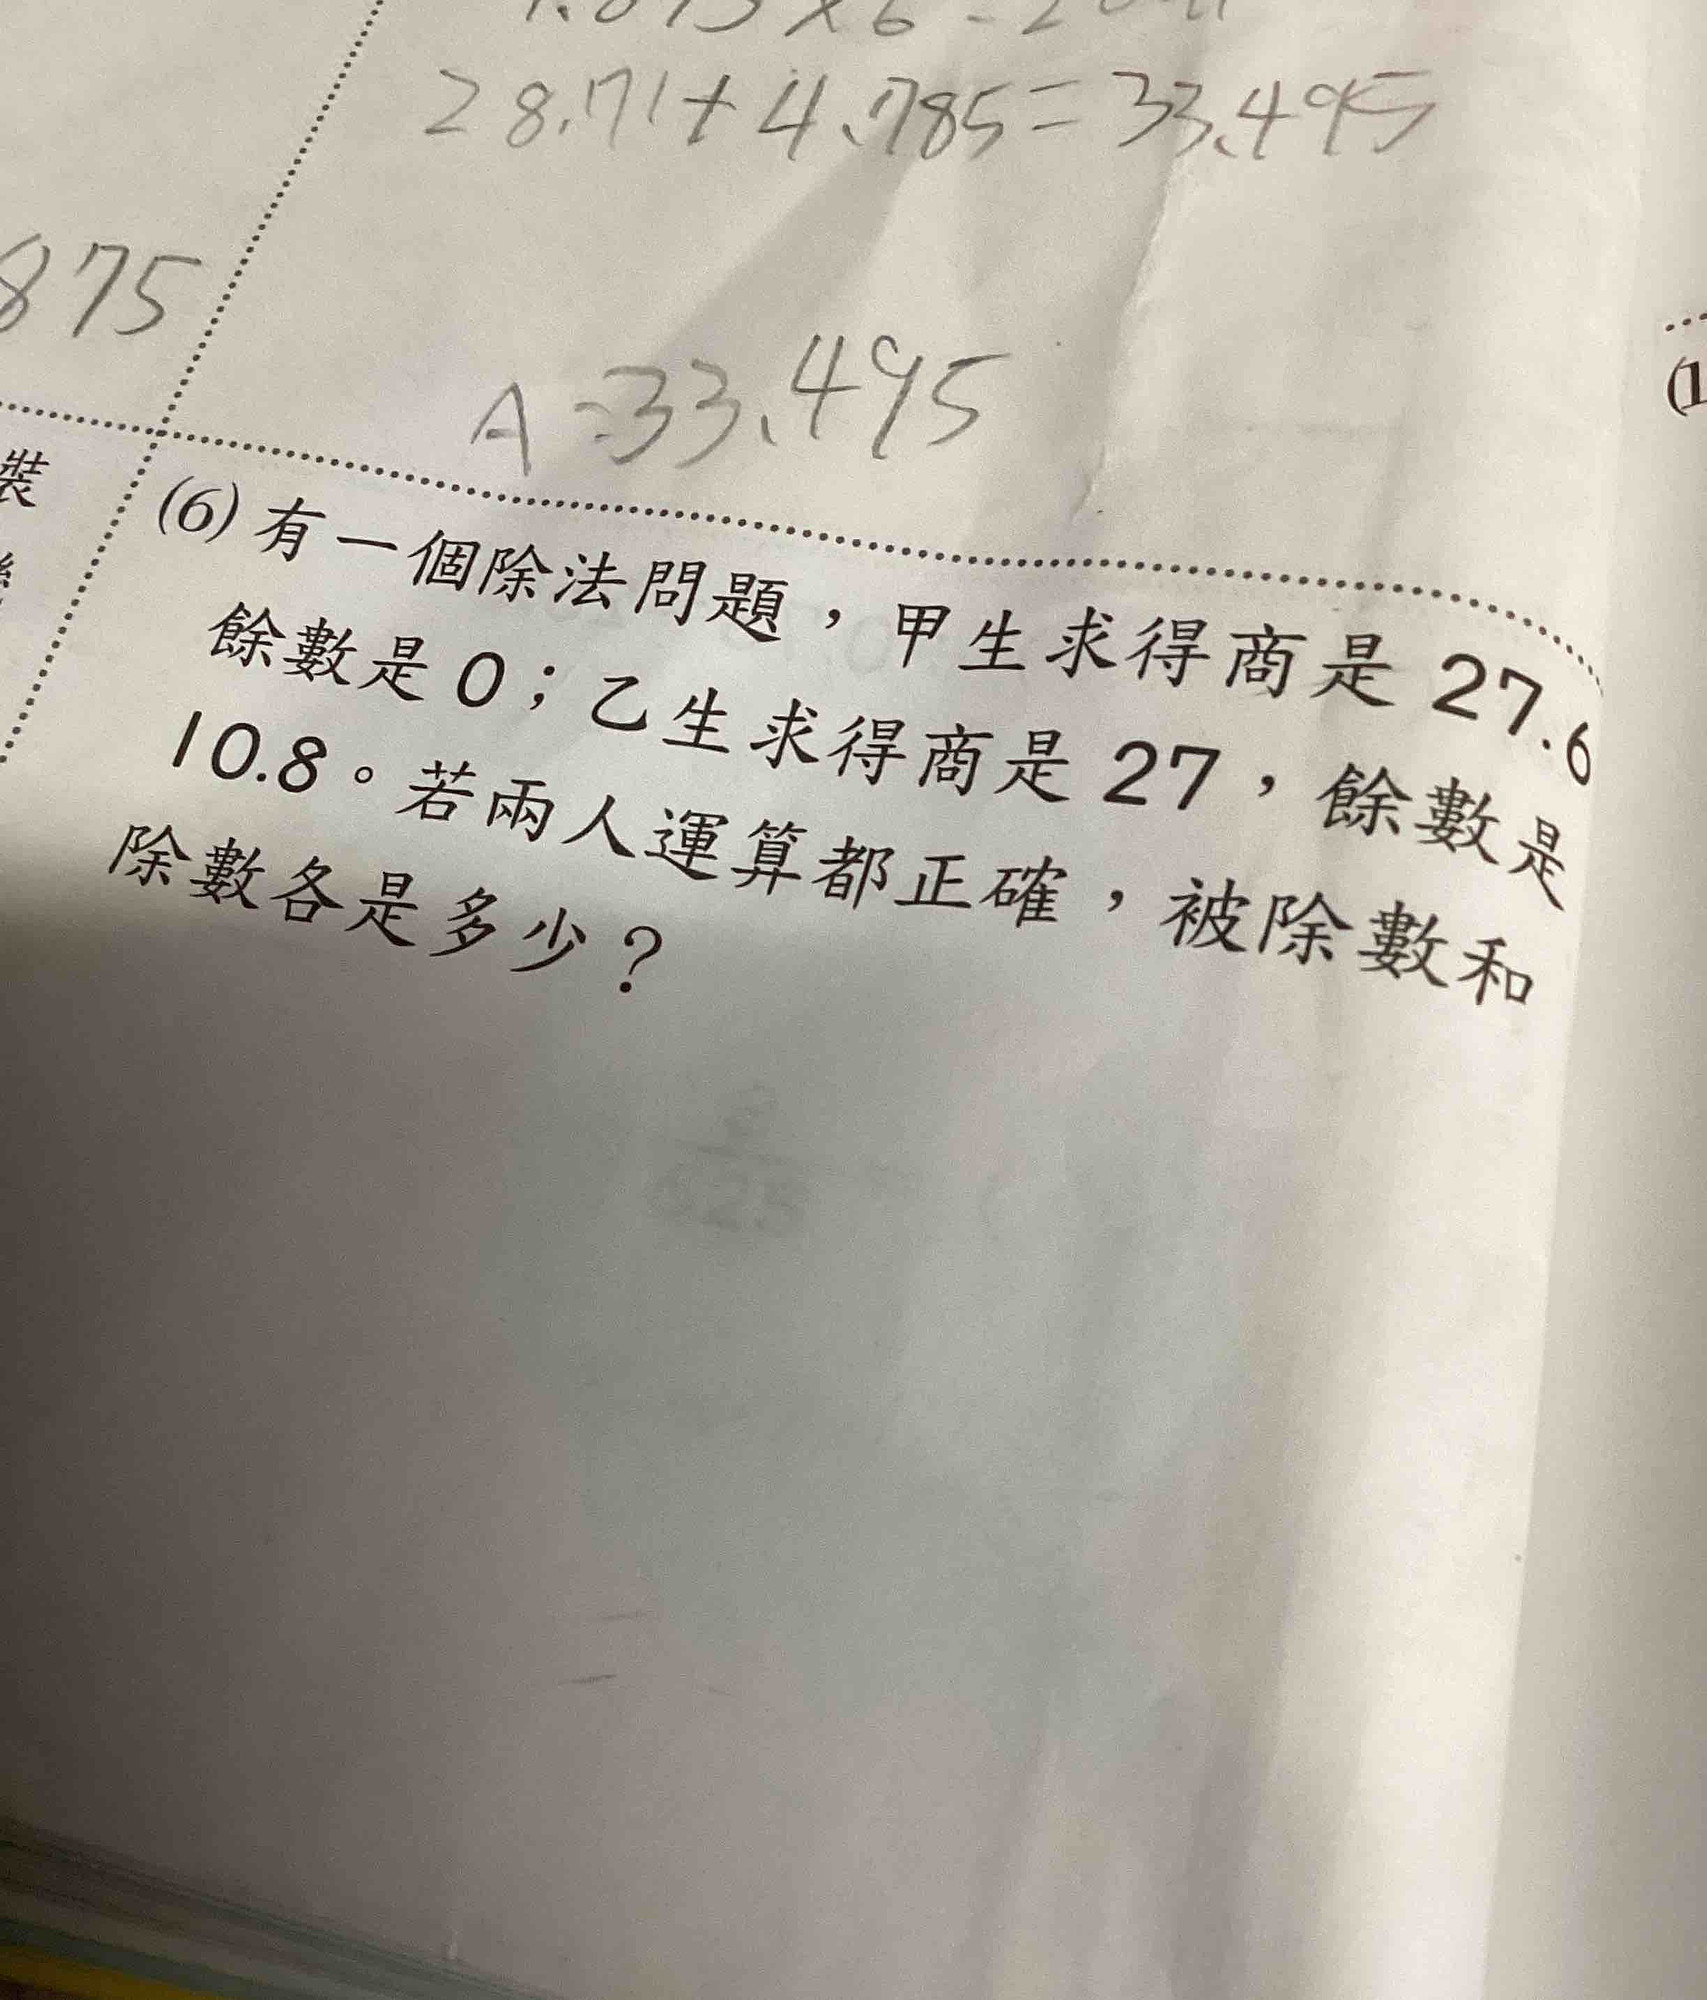 28.71+4.785=33.495
875
A=33.495
裝
(6) 有一個除法問題，甲生求得商是 27.6
餘數是 0；乙生求得商是 27，餘數是
10.8。若兩人運算都正確，被除數和
除數各是多少？
(1